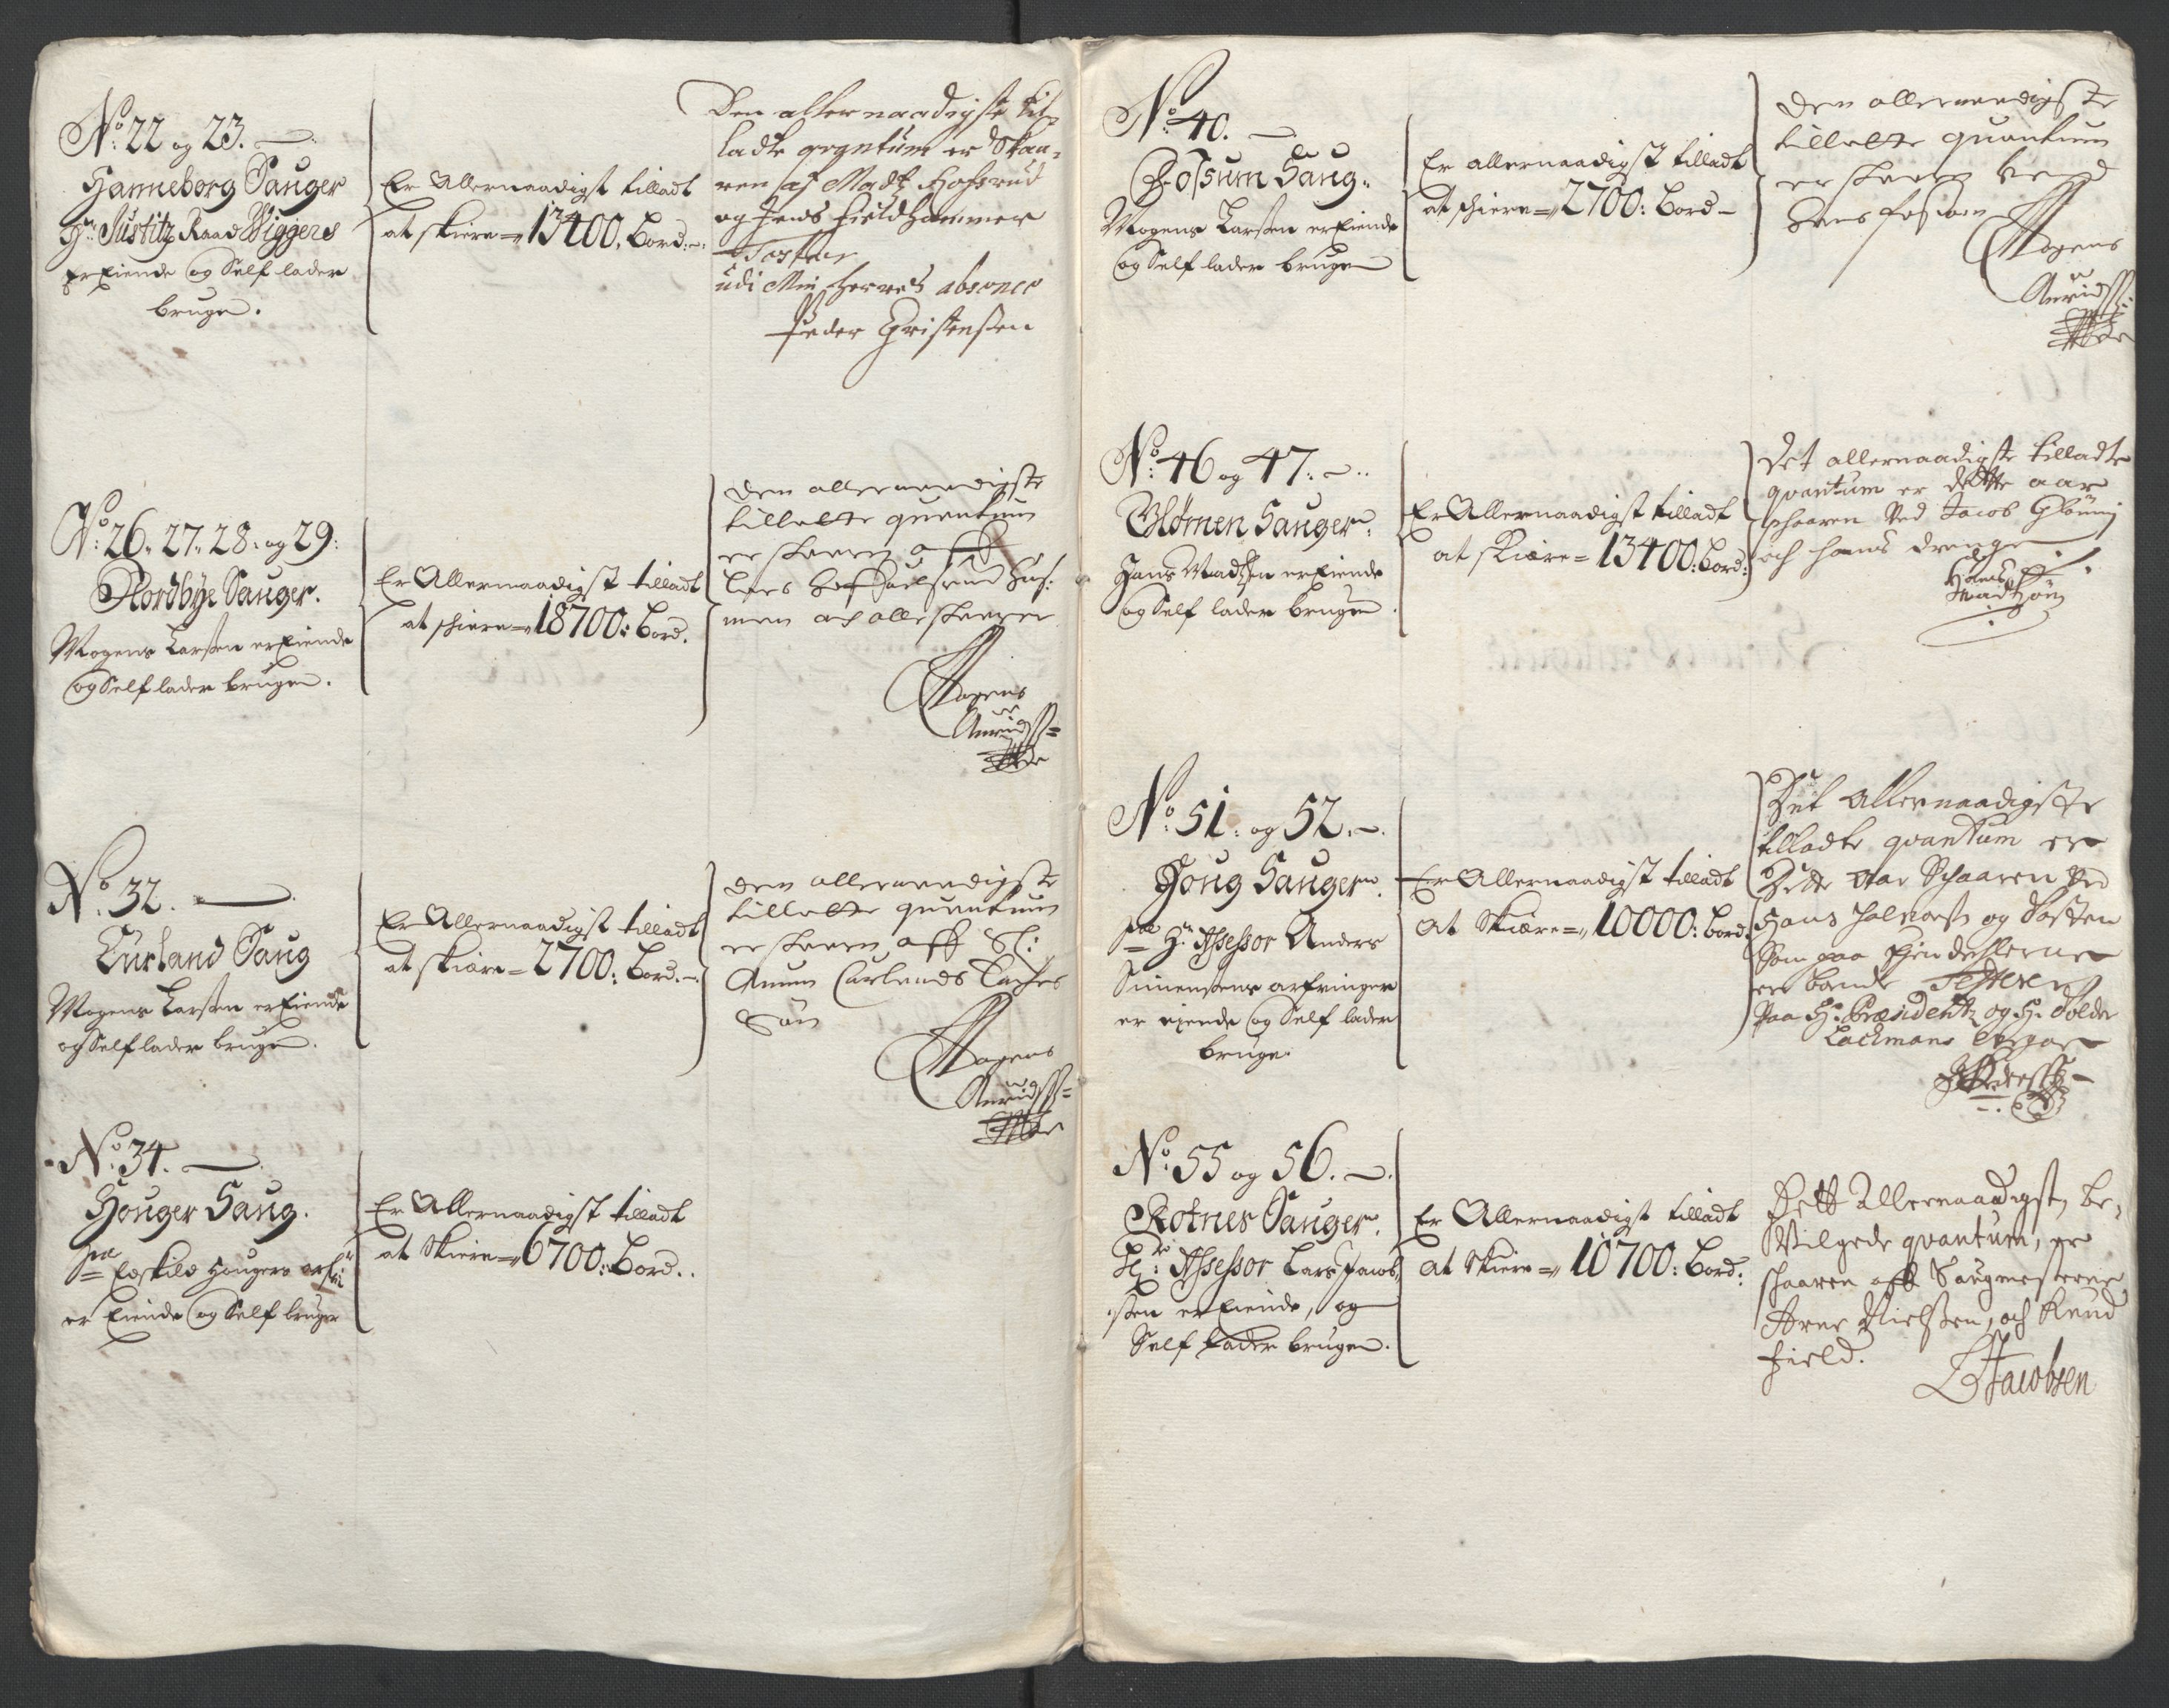 No: 22 og 23.
Hanneborg Sauger
Hr: Justitz Raad Wiggers
er Eiende og Self lader
bruge.
Er Allernaadigst tilladt
at skiere = 13400. Bord.
Den allernaadigste til-
ladte qvantum er Skaa-
ren af Madtz
og Jens Hield
udi Min Herres absence
Peder Christensen
No: 26. 27. 28. og 29:
Nordbye Sauger.
Mogens Larsen er Eiende
og Self lader bruge.
Er Allernaadigst tilladt
at schiere = 18700: Bord.
den allernaadigste
tilladte quantum
er skaaren aff
Lars
men
Mogens
No. 32.
Curland Saug
Mogens Larsen er Eiende
og Self lader bruge.
Er Allernaadigst tilladt
at skiære = 2700: Bord.
den allernaadigste
tilladte quantum
er skaaren aff Sl:
Curlands
Søn
Mogens
No. 34.
Houger Saug.
Sal Eskild Hougers
er Eiende og Self bruger
Er Allernaadigst tilladt
at Skiere = 6700: Bord.
No: 40.
Fossum Saug.
Mogens Larsen er Eiende
og Self lader bruge
Er allernaadigst tilladt
at schiere = 2700: Bord
den allernaadigste
tilladte quantum
er skaaren
Hans Fossum
Mogens
No: 46 og 47.
Glømen Sauger.
Hans Madtzen er Eiende
og Self lader bruge
Er Allernaadigst tilladt
at skiære = 13400: Bord:
Det allernaadigste tilladte
qvantum er dette aar
schaaren Ved Jacob
och hans drenge
Hans
No: 51. og 52.
Houg Sauger.
Sal Hr. Assessor Anders
Simensens arfvinger
er eiende og Self lader
bruge.
Er Allernaadigst tilladt
at Skiære = 10000: Bord.
Det Allernaadigste
tilladte qvantum er
Dette Aar Schaaren Ved
Hans og Tosten
Som paa
Paa Hr. Præsidentz og Hr. Tolder
Lachmans
No: 55 og 56.
Rotnes Sauger.
Hr: Assessor Lars Jacob-
sen er Eiende, og
Self lader bruge.
Er Allernaadigst tilladt
at Skiere = 10700: Bord:
Dett Allernaadigst be-
Vilgede qvantum, er
schaaren aff Saugmesterne
Arne Nielssen, och Knud
Field.
LJacobsen